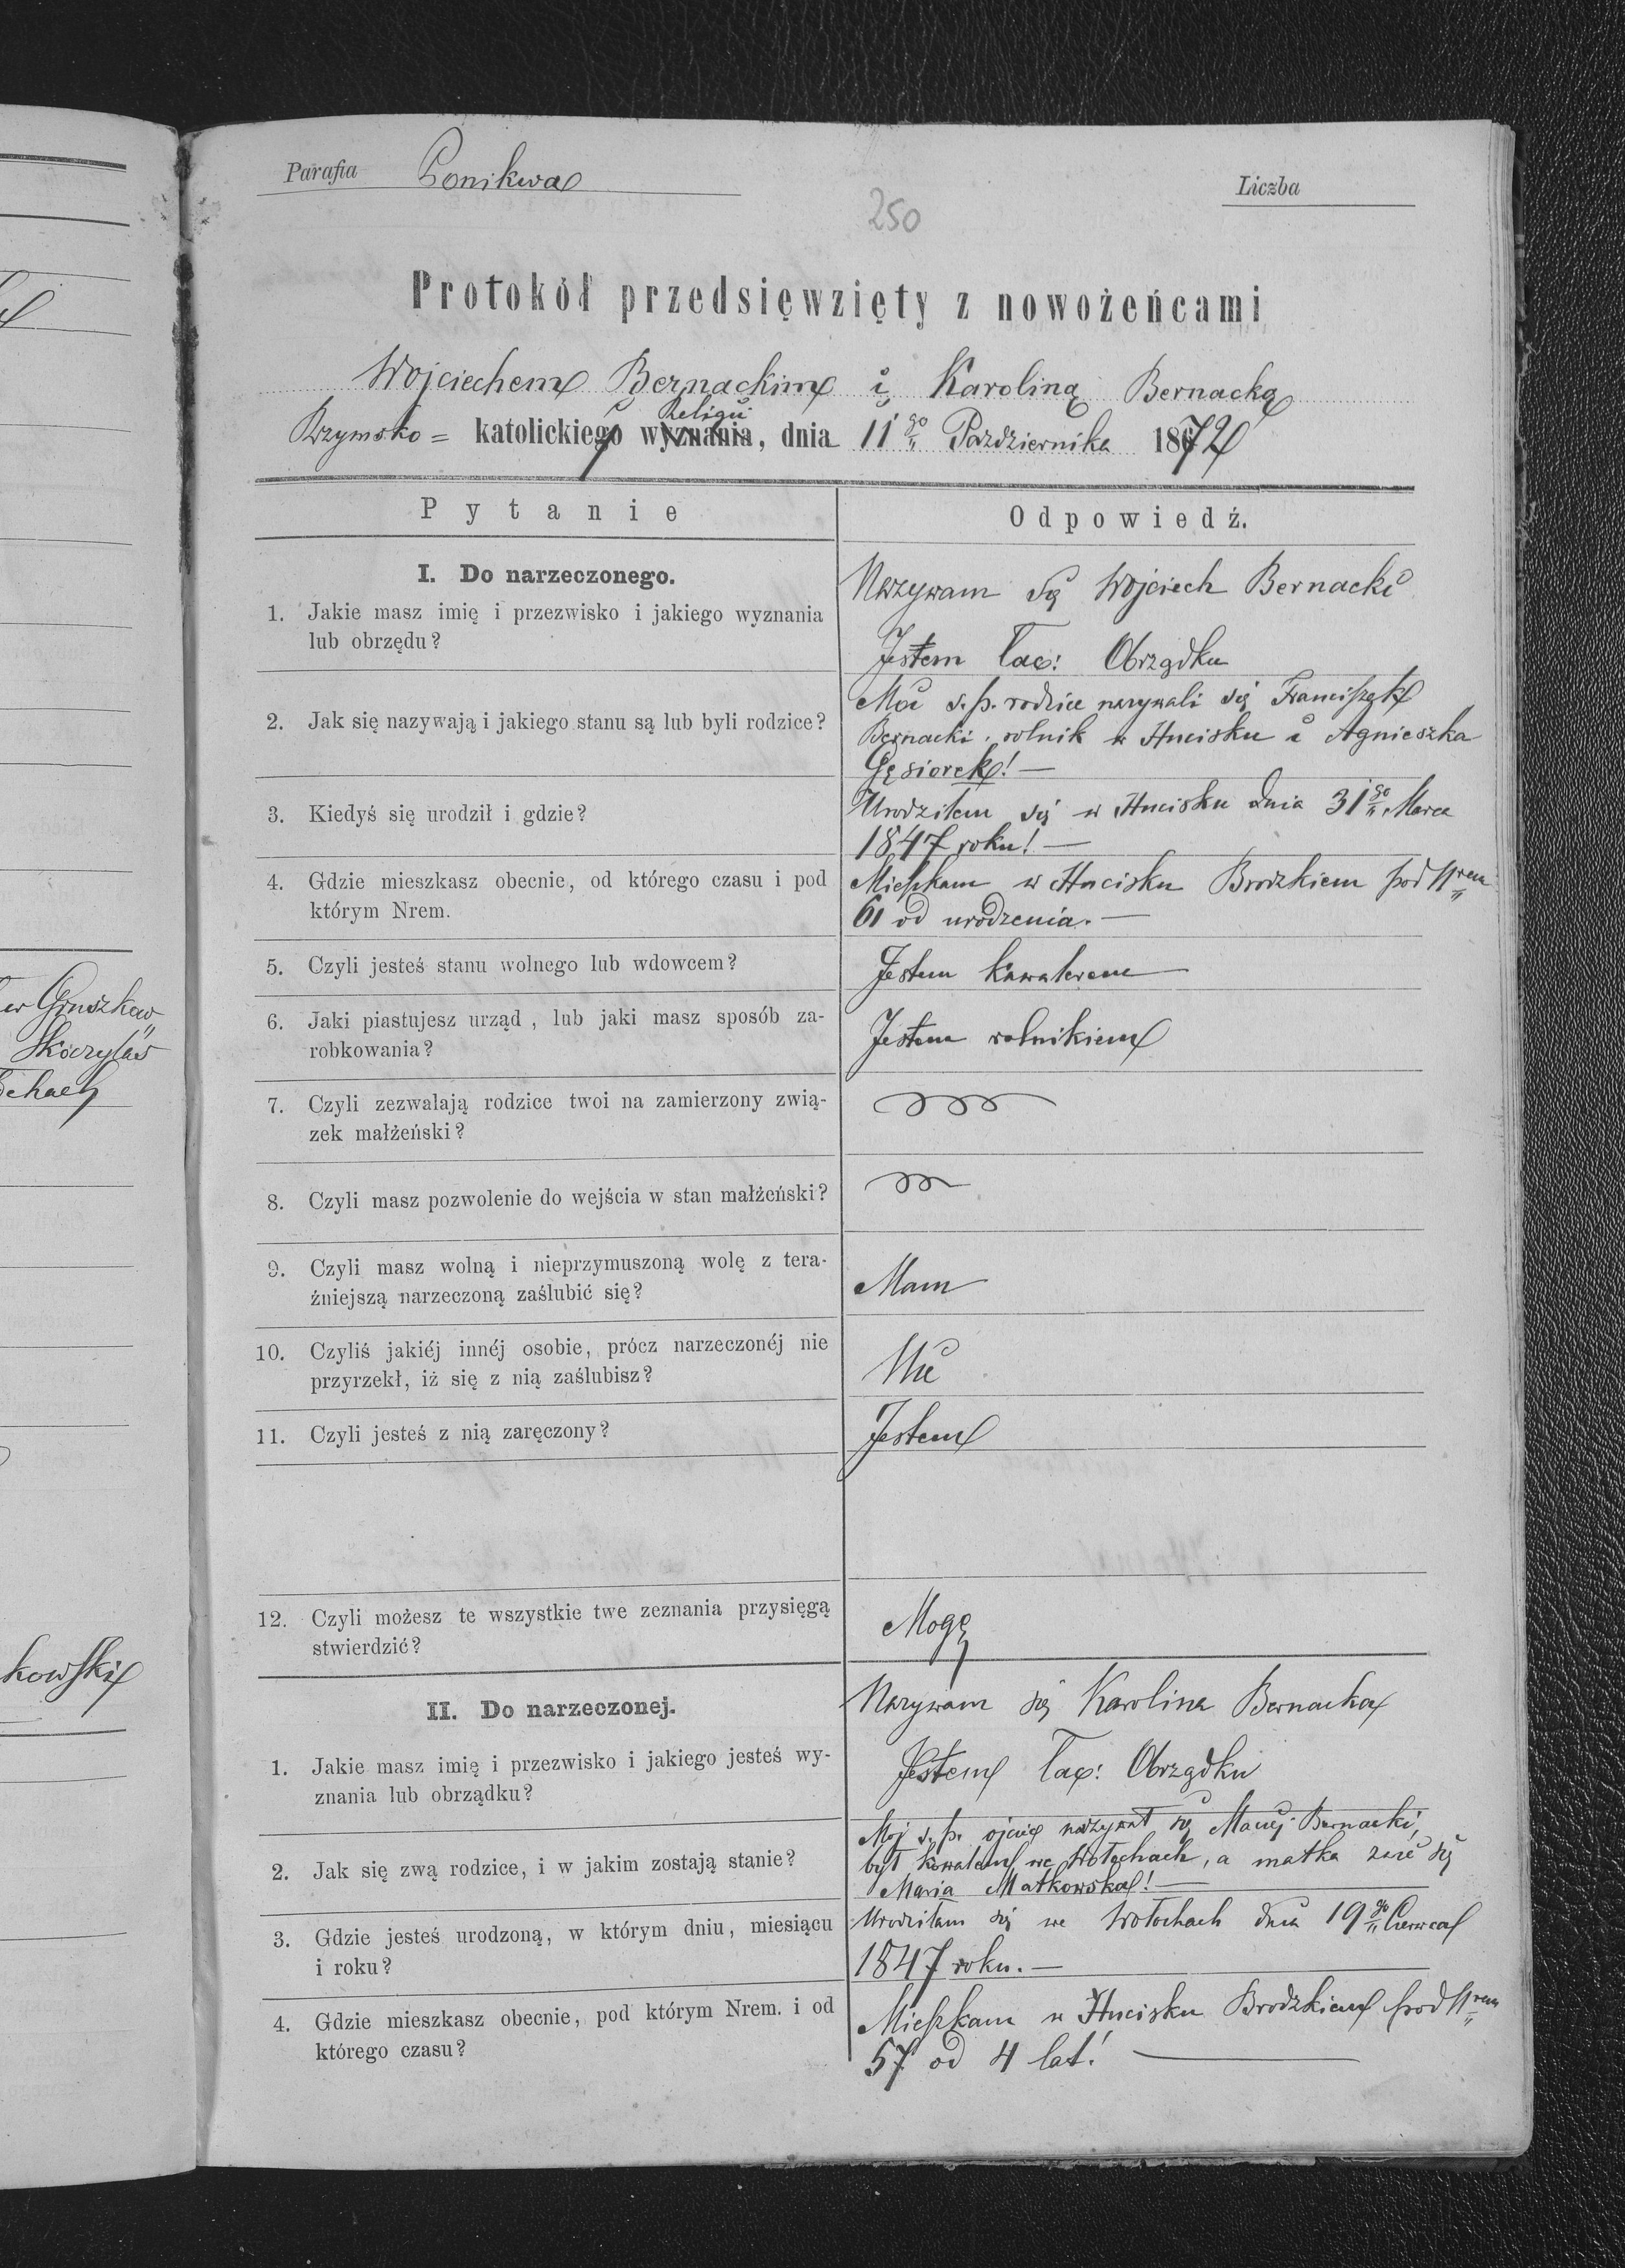 er Gruszkaw
Skoczylas
kowski
Parafia Ponikwa
Liczba
250
Protokół przedsięwzięty z nowożeńcami
Wojciechem Bernackim i Karoliną Bernacką
Religii
Rzymsko = katolickiego wyznania, dnia 11go Października 1872
Pytanie
Odpowiedź.
I. Do narzeczonego.
Nazywam się Wojciech Bernacki
1. Jakie masz imię i przezwisko i jakiego wyznania
lub obrzędu?
Jestem łac: Obrządku
2. Jak się nazywają i jakiego stanu są lub byli rodzice?
Moi ś. p. rodzice nazywali się Franciszek
Bernacki, rolnik w Hucisku i Agnieszka
Gęsiorek! —
3. Kiedyś się urodził i gdzie?
Urodziłem się w Hucisku dnia 31go Marca
1847 roku! —
4. Gdzie mieszkasz obecnie, od którego czasu i pod
którym Nrem.
Mieszkam w Hucisku Brodzkiem pod Nrem
61 od urodzenia. —
5. Czyli jesteś stanu wolnego lub wdowcem?
Jestem kawalerem
6. Jaki piastujesz urząd, lub jaki masz sposób za-
robkowania?
Jestem rolnikiem
7. Czyli zezwalają rodzice twoi na zamierzony zwią-
zek małżeński?
8. Czyli masz pozwolenie do wejścia w stan małżeński?
9. Czyli masz wolną i nieprzymuszoną wolę z tera-
źniejszą narzeczoną zaślubić się?
Mam
10. Czyliś jakiéj innéj osobie, prócz narzeczonéj nie
przyrzekł, iż się z nią zaślubisz?
Nie
11. Czyli jesteś z nią zaręczony?
Jestem
12. Czyli możesz te wszystkie twe zeznania przysięgą
stwierdzić?
Mogę
II. Do narzeczonej.
Nazywam się Karolina Bernacka
1. Jakie masz imię i przezwisko i jakiego jesteś wy-
znania lub obrządku?
Jestem łac: Obrządku
2. Jak się zwą rodzice, i w jakim zostają stanie?
Moj ś. p. ojciec nazywał się Maciej Bernacki,
był kowalem we Wołochach, a matka zwie się
Maria Małkowska! —
3. Gdzie jesteś urodzoną, w którym dniu, miesiącu
i roku?
Urodziłam się we Wołochach dnia 19go Czerwca
1847 roku. —
4. Gdzie mieszkasz obecnie, pod którym Nrem. i od
którego czasu?
Mieszkam w Hucisku Brodzkiem pod Nrem
57 od 4 lat! —